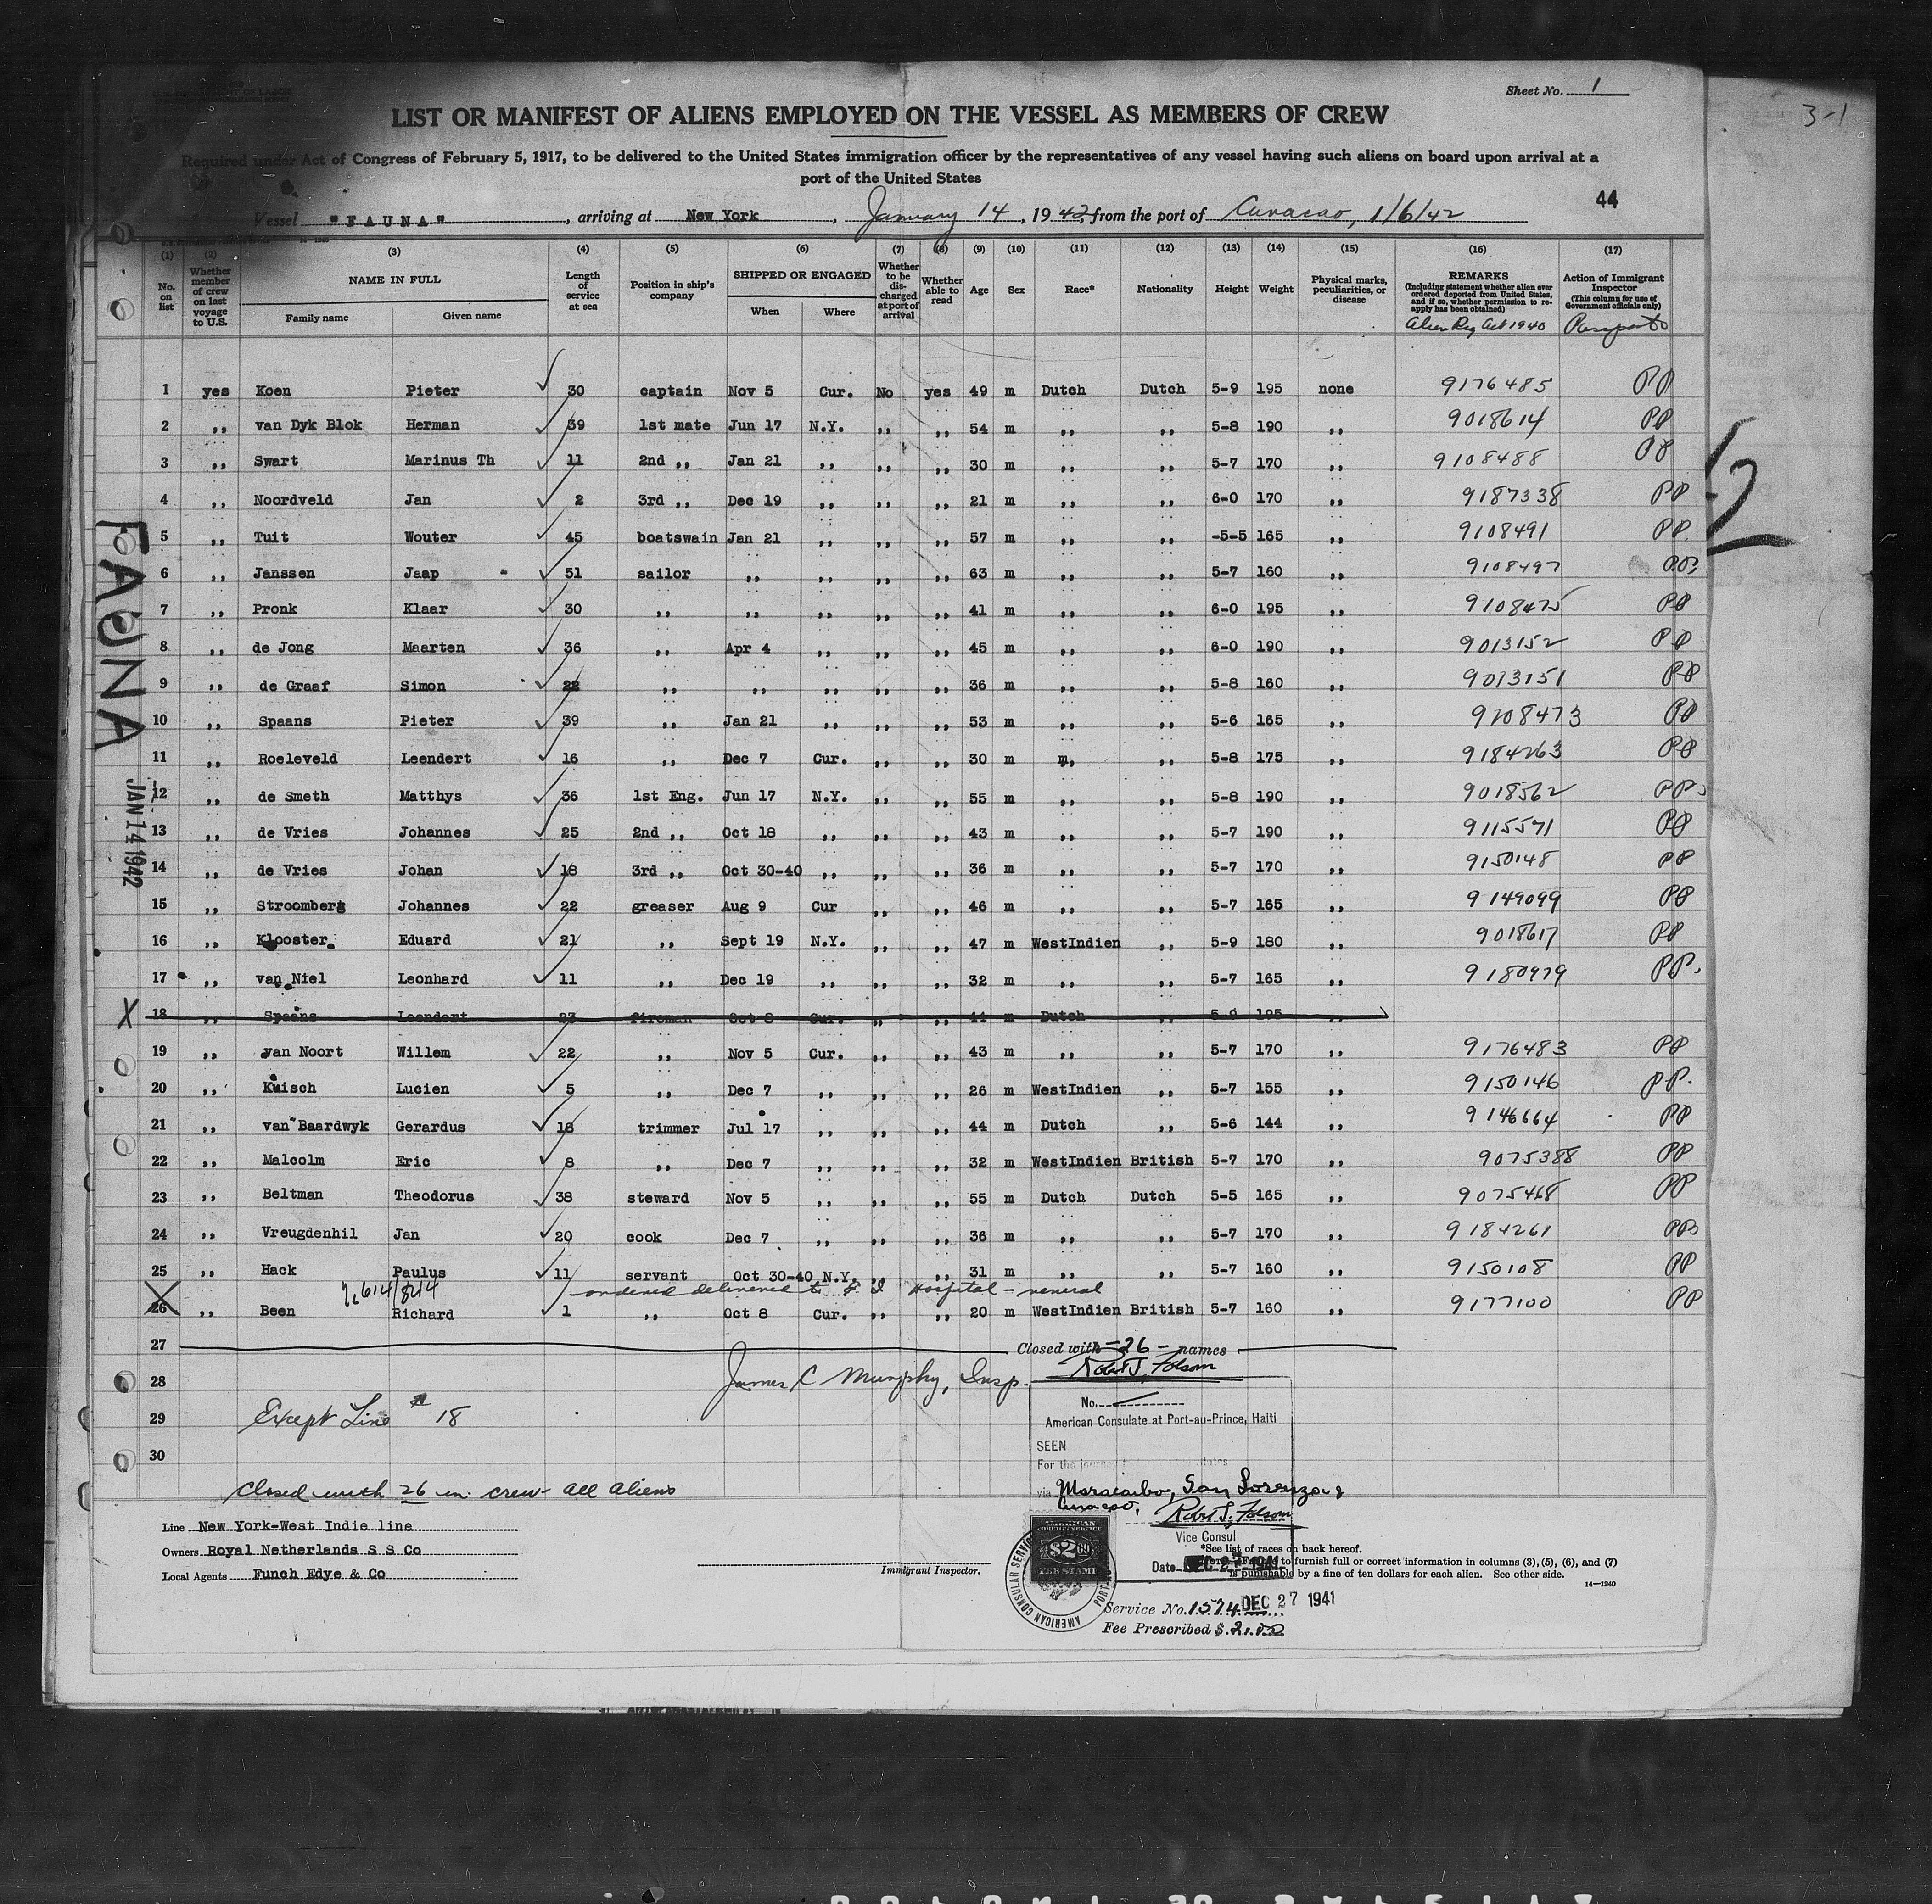 Sheet No. 1
3-1
LIST OR MANIFEST OF ALIENS EMPLOYED ON THE VESSEL AS MEMBERS OF CREW
Required under Act of Congress of February 5, 1917, to be delivered to the United States immigration officer by the representatives of any vessel having such aliens on board upon arrival at a
port of the United States
44
Vessel "FAUNA", arriving at New York, January 14, 1942, from the port of Curacao, 1/6/42
(1) No. on list
(2) Whether member of crew on last voyage to U.S.
(3) NAME IN FULL Family name Given name
(4) Length of service at sea
(5) Position in ship's company
(6) SHIPPED OR ENGAGED When Where
(7) Whether to be discharged at port of arrival
(8) Whether able to read
(9) Age
(10) Sex
(11) Race*
(12) Nationality
(13) Height
(14) Weight
(15) Physical marks, peculiarities, or disease
(16) REMARKS (Including statement whether alien ever ordered deported from United States, and if so, whether permission to reapply has been obtained) Alien Reg Act 1940
(17) Action of Immigrant Inspector (This column for use of Government officials only) Passports
1 yes Koen Pieter 30 captain Nov 5 Cur. No yes 49 m Dutch Dutch 5-9 195 none 9176485 PP
2 ,, van Dyk Blok Herman 39 1st mate Jun 17 N.Y. ,, ,, 54 m ,, ,, 5-8 190 ,, 9018614 PP
3 ,, Swart Marinus Th 11 2nd ,, Jan 21 ,, ,, ,, 30 m ,, ,, 5-7 170 ,, 9108488 PP
4 ,, Noordveld Jan 2 3rd ,, Dec 19 ,, ,, ,, 21 m ,, ,, 6-0 170 ,, 9187338 PP
5 ,, Tuit Wouter 45 boatswain Jan 21 ,, ,, ,, 57 m ,, ,, -5-5 165 ,, 9108491 PP
6 ,, Janssen Jaap 51 sailor ,, ,, ,, ,, 63 m ,, ,, 5-7 160 ,, 9108497 PP
7 ,, Pronk Klaar 30 ,, ,, ,, ,, ,, 41 m ,, ,, 6-0 195 ,, 9108475 PP
8 ,, de Jong Maarten 36 ,, Apr 4 ,, ,, ,, 45 m ,, ,, 6-0 190 ,, 9013152 PP
9 ,, de Graaf Simon 22 ,, ,, ,, ,, ,, 36 m ,, ,, 5-8 160 ,, 9013151 PP
10 ,, Spaans Pieter 39 ,, Jan 21 ,, ,, ,, 53 m ,, ,, 5-6 165 ,, 9108473 PP
11 ,, Roeleveld Leendert 16 ,, Dec 7 Cur. ,, ,, 30 m ,, ,, 5-8 175 ,, 9184263 PP
12 ,, de Smeth Matthys 36 1st Eng. Jun 17 N.Y. ,, ,, 55 m ,, ,, 5-8 190 ,, 9018562 PP
13 ,, de Vries Johannes 25 2nd ,, Oct 18 ,, ,, ,, 43 m ,, ,, 5-7 190 ,, 9115571 PP
14 ,, de Vries Johan 18 3rd ,, Oct 30-40 ,, ,, ,, 36 m ,, ,, 5-7 170 ,, 9150148 PP
15 ,, Stroomberg Johannes 22 greaser Aug 9 Cur ,, ,, 46 m ,, ,, 5-7 165 ,, 9149099 PP
16 ,, Klooster Eduard 21 ,, Sept 19 N.Y. ,, ,, 47 m WestIndien ,, 5-9 180 ,, 9018617 PP
17 ,, van Niel Leonhard 11 ,, Dec 19 ,, ,, ,, 32 m ,, ,, 5-7 165 ,, 9180979 PP.
X 18 ,, Spaans Leendert 23 fireman Oct 8 Cur. ,, ,, 44 m Dutch ,, 5-9 195 ,,
19 ,, van Noort Willem 22 ,, Nov 5 Cur. ,, ,, 43 m ,, ,, 5-7 170 ,, 9176483 PP
20 ,, Kuisch Lucien 5 ,, Dec 7 ,, ,, ,, 26 m WestIndien ,, 5-7 155 ,, 9150146 PP.
21 ,, van Baardwyk Gerardus 18 trimmer Jul 17 ,, ,, ,, 44 m Dutch ,, 5-6 144 ,, 9146664 PP
22 ,, Malcolm Eric 8 ,, Dec 7 ,, ,, ,, 32 m WestIndien British 5-7 170 ,, 9075388 PP
23 ,, Beltman Theodorus 38 steward Nov 5 ,, ,, ,, 55 m Dutch Dutch 5-5 165 ,, 9075468 PP
24 ,, Vreugdenhil Jan 20 cook Dec 7 ,, ,, ,, 36 m ,, ,, 5-7 170 ,, 9184261 PP
25 ,, Hack Paulus 11 servant Oct 30-40 N.Y. ,, ,, 31 m ,, ,, 5-7 160 ,, 9150108 PP
ordered delivered to E I Hospital - veneral
X 26 ,, Been Richard 1 ,, Oct 8 Cur. ,, ,, 20 m WestIndien British 5-7 160 ,, 9177100 PP
27 Closed with -26- names
Robt S. Folsom
28 James C Murphy, Insp.
29 Except Line # 18
30
closed with 26 in crew - all aliens
FAUNA
JAN 14 1942
No.
American Consulate at Port-au-Prince, Haiti
SEEN
For the journey
via Maracaibo, San Lorenzo &
Curacao,
Robt S. Folsom
Vice Consul
Date DEC 27 1941
AMERICAN FOREIGN SERVICE
$2.00
FEE STAMP
AMERICAN CONSULAR SERVICE
Service No. 1574 DEC 27 1941
Fee Prescribed $ 2.00
Line New York-West Indie line
Owners Royal Netherlands S S Co
Local Agents Funch Edye & Co
Immigrant Inspector.
*See list of races on back hereof.
to furnish full or correct information in columns (3), (5), (6), and (7)
is punishable by a fine of ten dollars for each alien. See other side.
14-1240